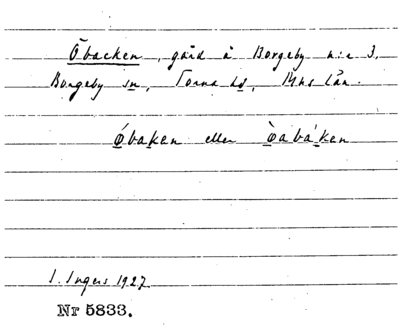 Öbacken, gård å Borgeby n:r 3,
Borgeby sn, Torna hd, Mhs län.
Ǿbakən eller øabákən
I. Ingers 1927
Nr 5833.